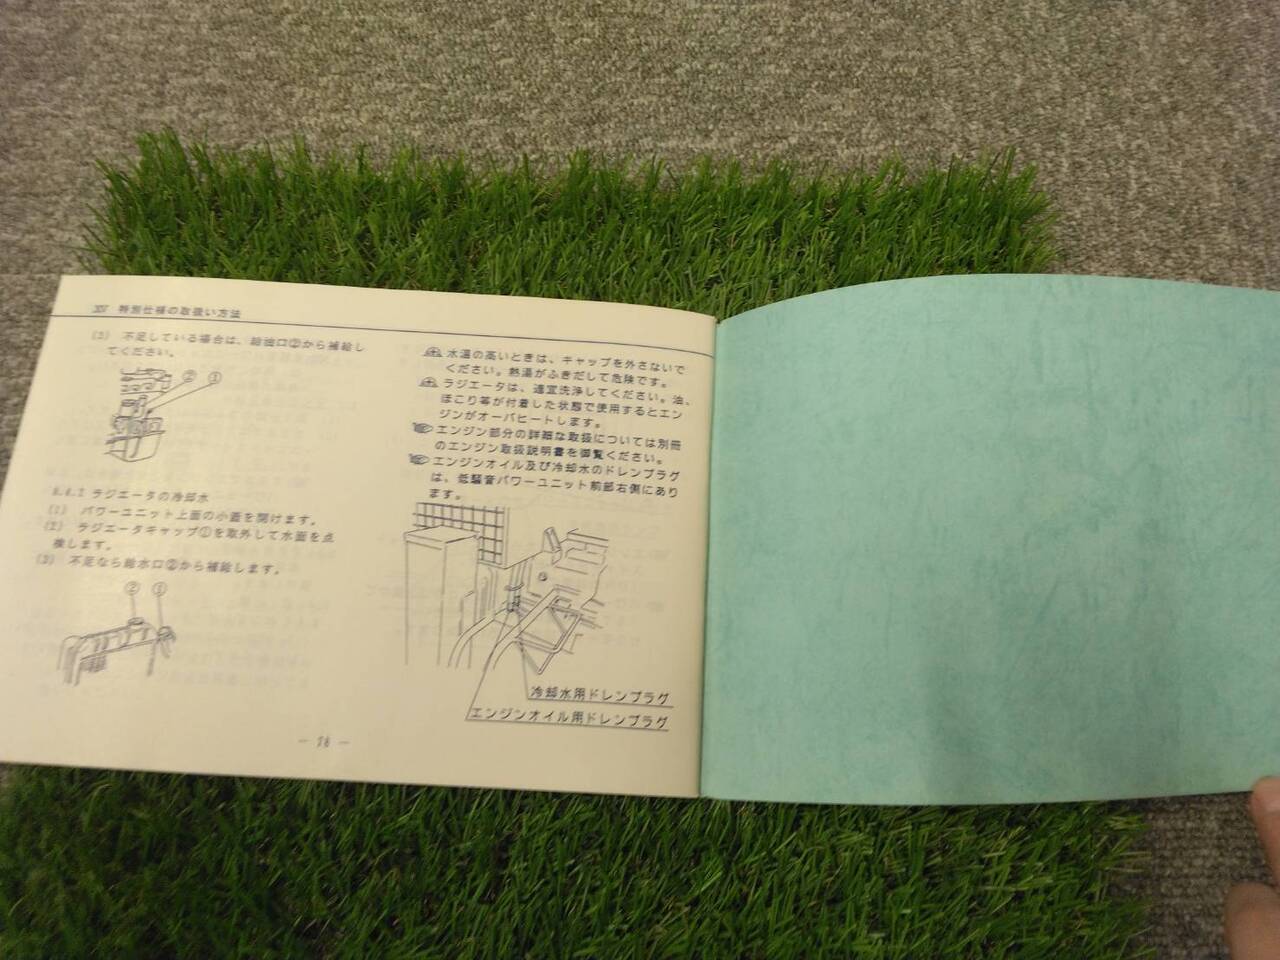 特別仕様の取扱い方法
(3) 不足している場合は、給油口②から補給し
てください。
② ①
ラジエータの冷却水
(1) パワーユニット上面の小蓋を開けます。
(2) ラジエータキャップ①を取外して水面を点
検します。
(3) 不足なら給水口②から補給します。
② ①
水温の高いときは、キャップを外さないで
ください。熱湯がふきだして危険です。
ラジエータは、適宜洗浄してください。油、
ほこり等が付着した状態で使用するとエン
ジンがオーバヒートします。
エンジン部分の詳細な取扱については別冊
のエンジン取扱説明書を御覧ください。
エンジンオイル及び冷却水のドレンプラグ
は、低騒音パワーユニット前部右側にあり
ます。
冷却水用ドレンプラグ
エンジンオイル用ドレンプラグ